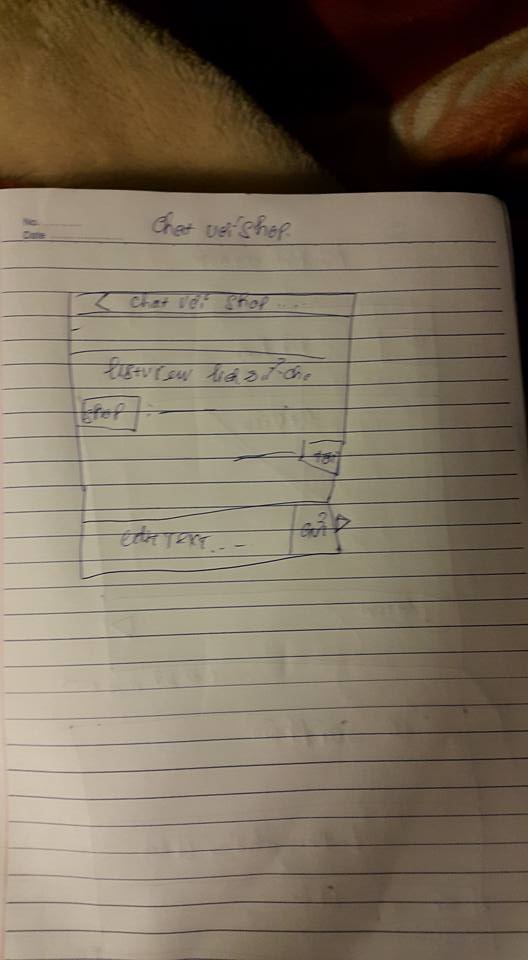 No.
Date
Chat với Shop.
< chat với shop ....
listview lịch sử
shop : ——
tôi
edit TEXT...
gửi